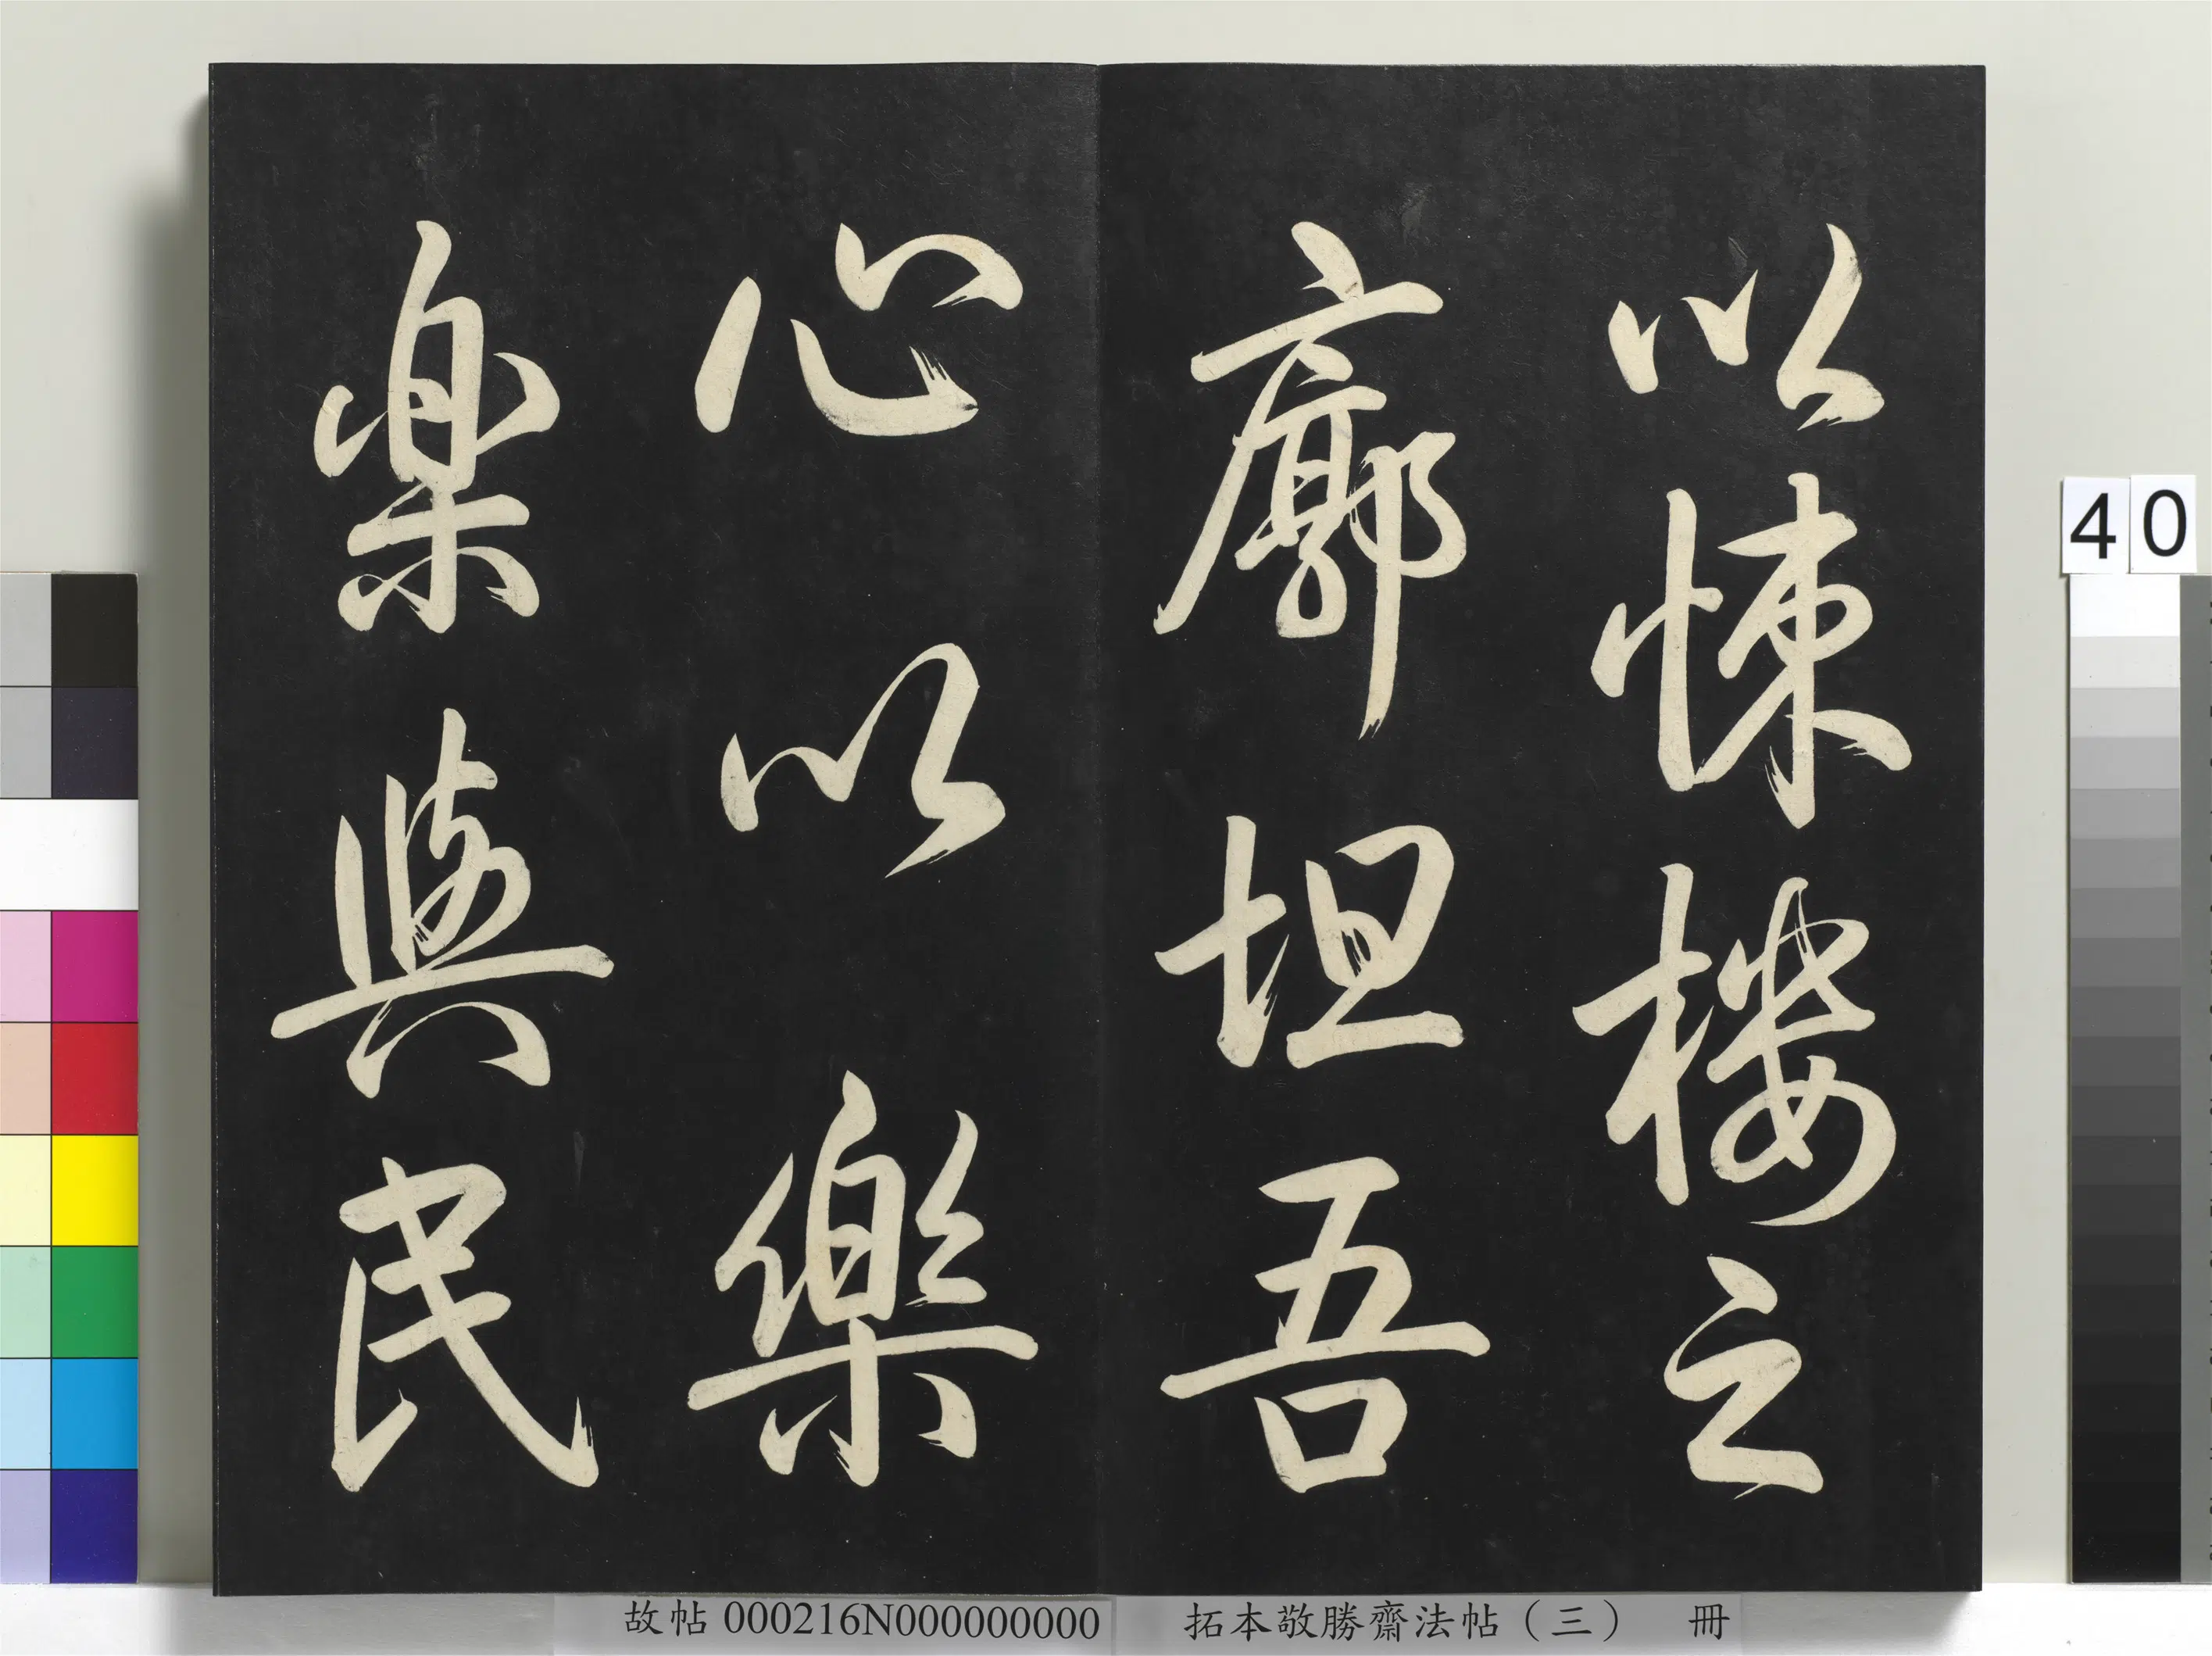 以悚樓之
廓坦吾
心以樂
樂與民
40
故帖 000216N000000000 拓本敬勝齋法帖（三） 冊